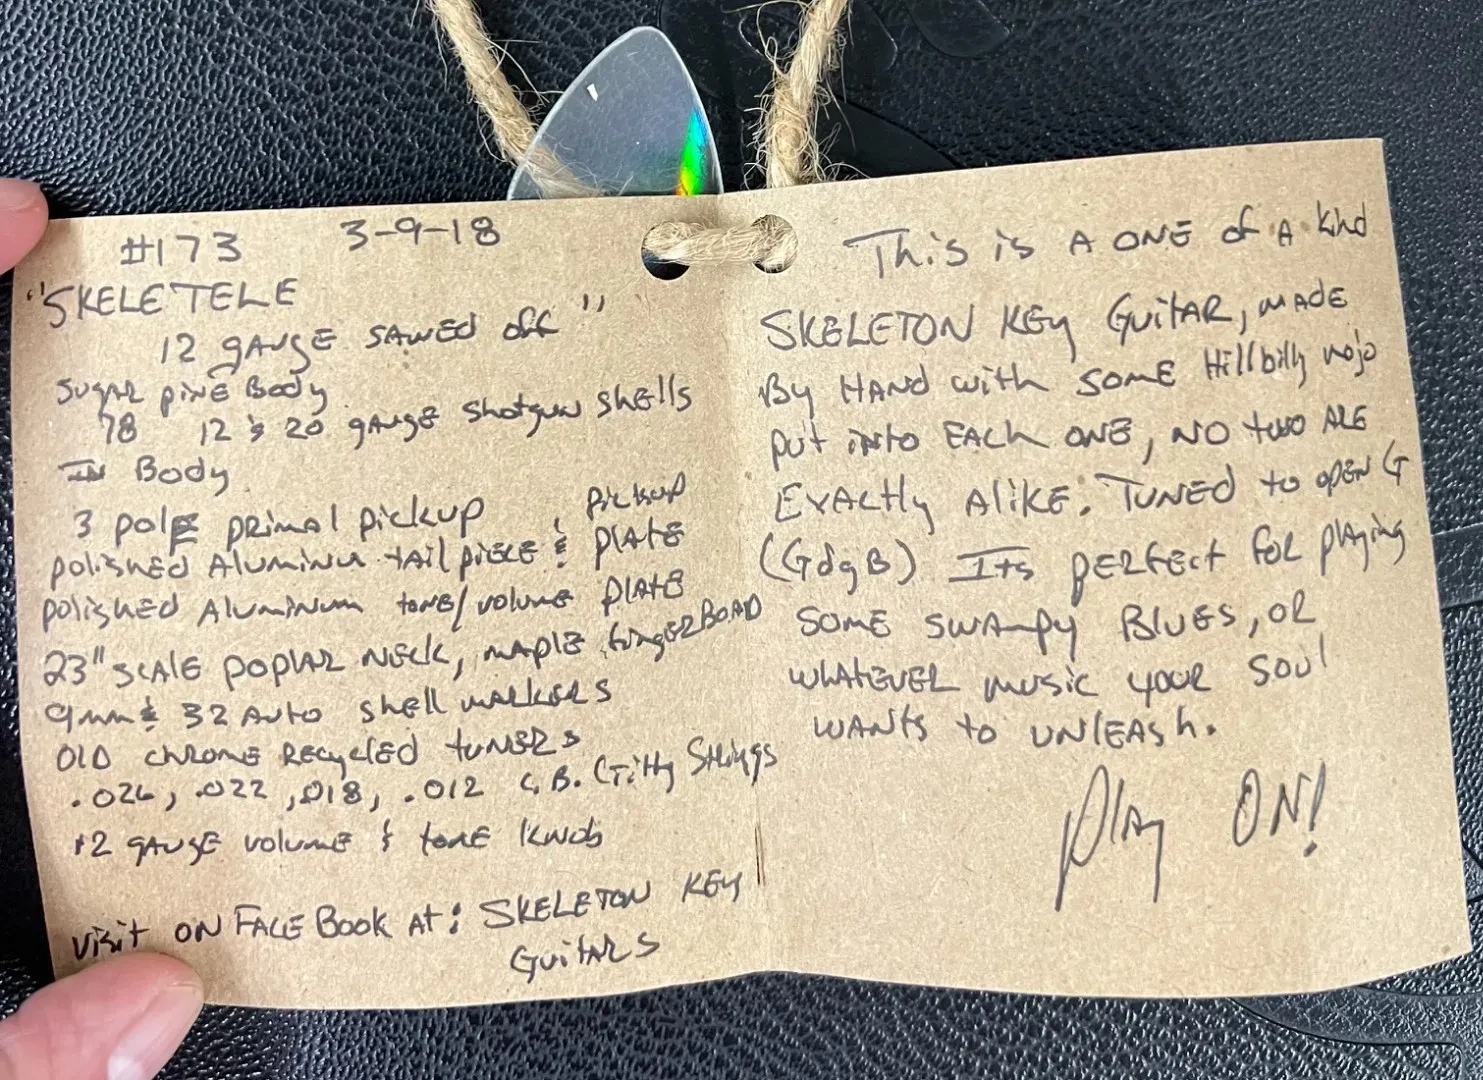 #173 3-9-18
"SKELETELE
12 gauge sawed off"
Sugar pine Body
78 12 & 20 gauge shotgun shells
In Body
3 pole primal pickup
polished Aluminum tail piece & pickup plate
polished Aluminum tone/volume plate
23" scale poplar neck, maple fingerboard
9mm & 32 Auto shell markers
Old chrome recycled tuners
.026, .022, .018, .012 C.B. Gitty Strings
12 gauge volume & tone knob
Visit on FaceBook at: Skeleton Key
Guitars
This is a one of a kind
Skeleton Key Guitar, made
By Hand with some Hillbilly mojo
put into each one, no two are
exactly alike. Tuned to open G
(GdgB) Its perfect for playing
some swampy Blues, or
whatever music your soul
wants to unleash.
Play ON!